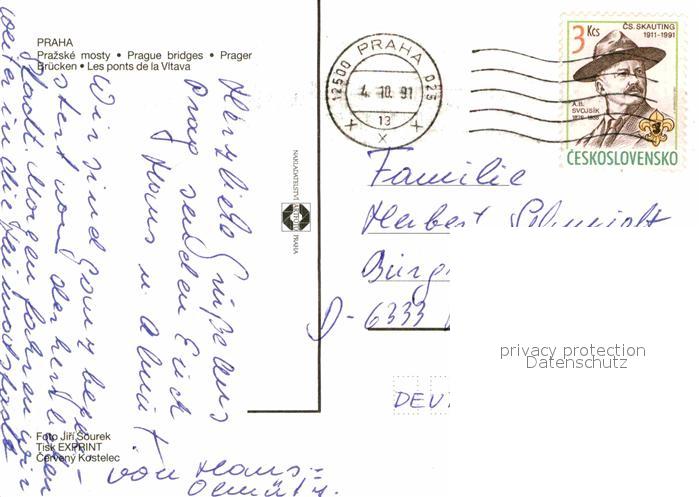 PRAHA
Pražské mosty • Prague bridges • Prager
Brücken • Les ponts de la Vltava
Herzliche Grüße aus
Prag senden Euch
Hans u. Almut.
Wir sind ganz begei-
stert von der herrlichen
Stadt. Morgen fahren wir
weiter in die Heimatstadt
von Hans =
Olmütz.
NAKLADATELSTVÍ PRAHA
Foto Jiří Sourek
Tisk EXPRINT
Červený Kostelec
12500 PRAHA 025
4.10.91
13
3 Kčs
ČS. SKAUTING
1911-1991
A.B.
SVOJSÍK
1876-1938
ČESKOSLOVENSKO
Familie
Herbert Schmidt
Bürg
D- 6333
DEU
privacy protection
Datenschutz